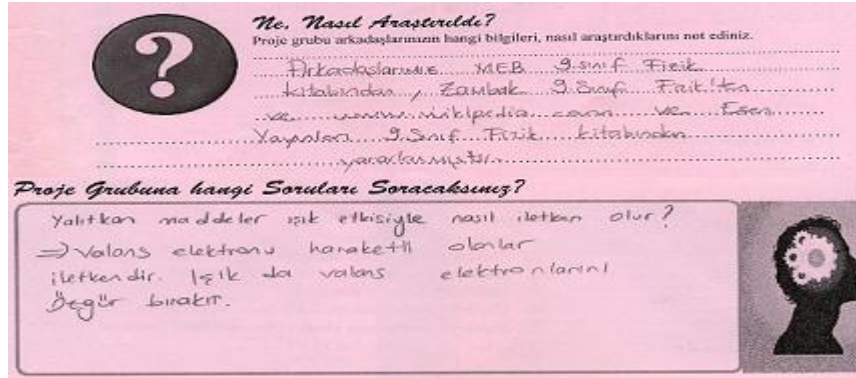 Ne, Nasıl Araştırıldı?
Proje grubu arkadaşlarınızın hangi bilgileri, nasıl araştırdıklarını not ediniz.
Arkadaşlarımız MEB 9.sınıf Fizik
kitabından, Zambak 9.Sınıf Fizik'ten
ve www.wikipedia.com ve Esen
Yayınları 9.Sınıf Fizik kitabından
yararlanmıştır.
Proje Grubuna hangi Soruları Soracaksınız?
Yalıtkan maddeler ışık etkisiyle nasıl iletken olur?
⇒ Valans elektronu haraketli olanlar
iletkendir. Işık da valans elektronlarını
özgür bırakır.